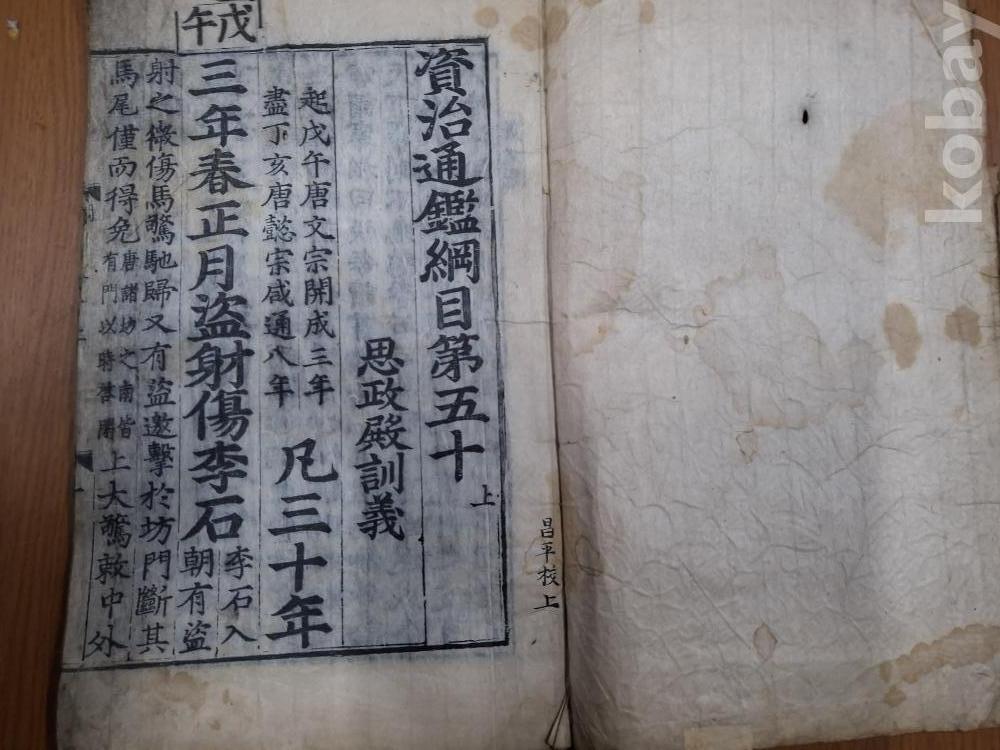 kobay
昌平校上
資治通鑑綱目第五十上
思政殿訓義
起戊午唐文宗開成三年
盡丁亥唐懿宗咸通八年
凡三十年
戊午
三年春正月盜射傷李石
李石入
朝有盜
射之微傷馬驚馳歸又有盜邀擊於坊門斷其
馬尾僅而得免
唐諸坊之南皆
有門以時啓閉
上大驚敕中外